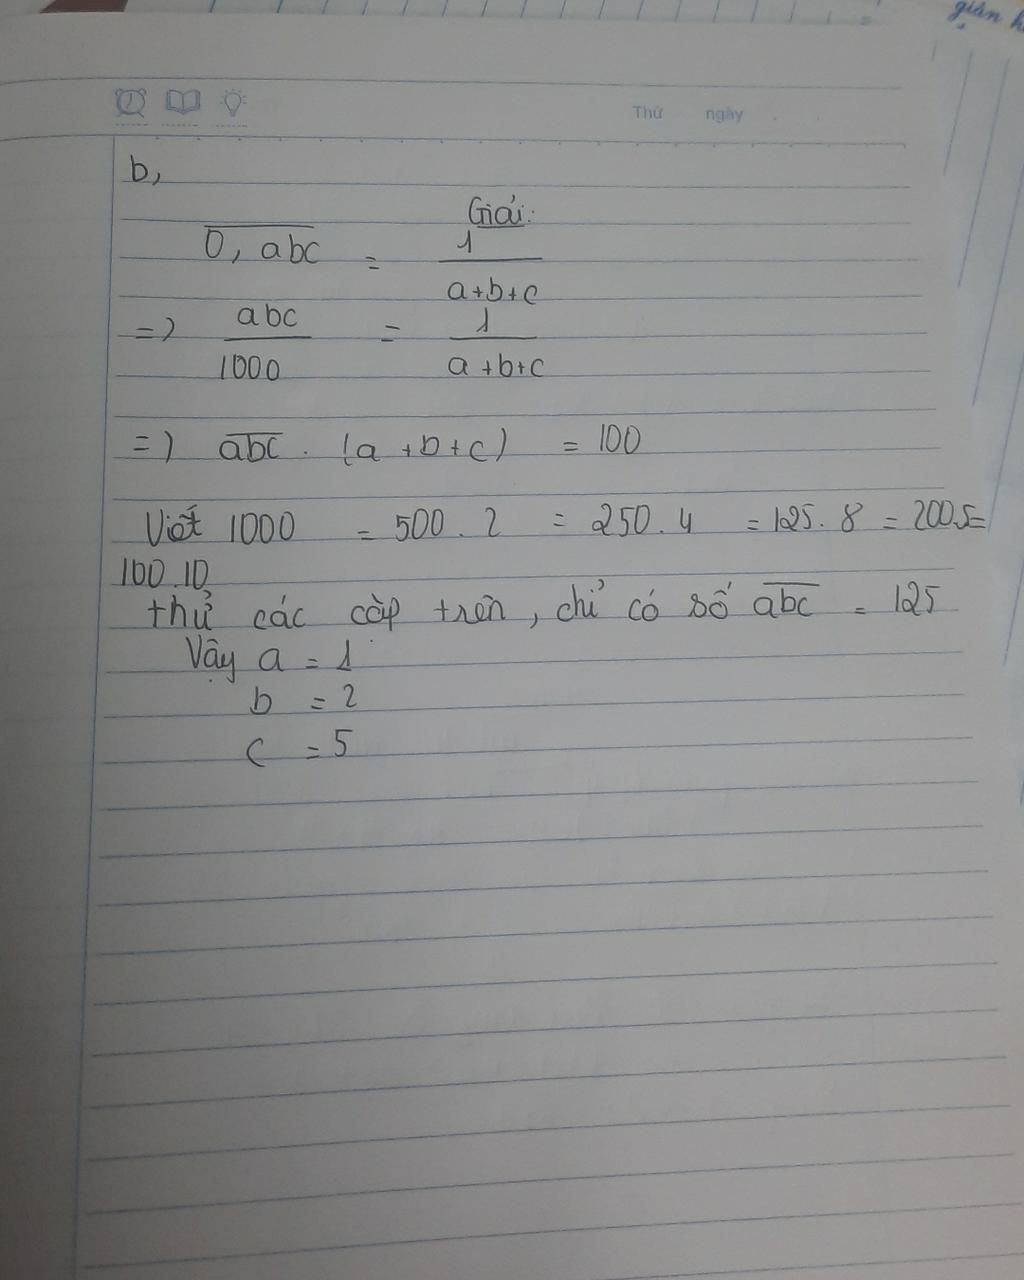 giản
Thứ ngày
b,
Giải:
0, abc = 1 / a+b+c
=> abc / 1000 = 1 / a+b+c
=> abc . (a+b+c) = 100
Viết 1000 = 500 . 2 = 250 . 4 = 125 . 8 = 200.5=
100.10
thử các cặp trên, chỉ có số abc = 125
Vậy a = 1
b = 2
c = 5